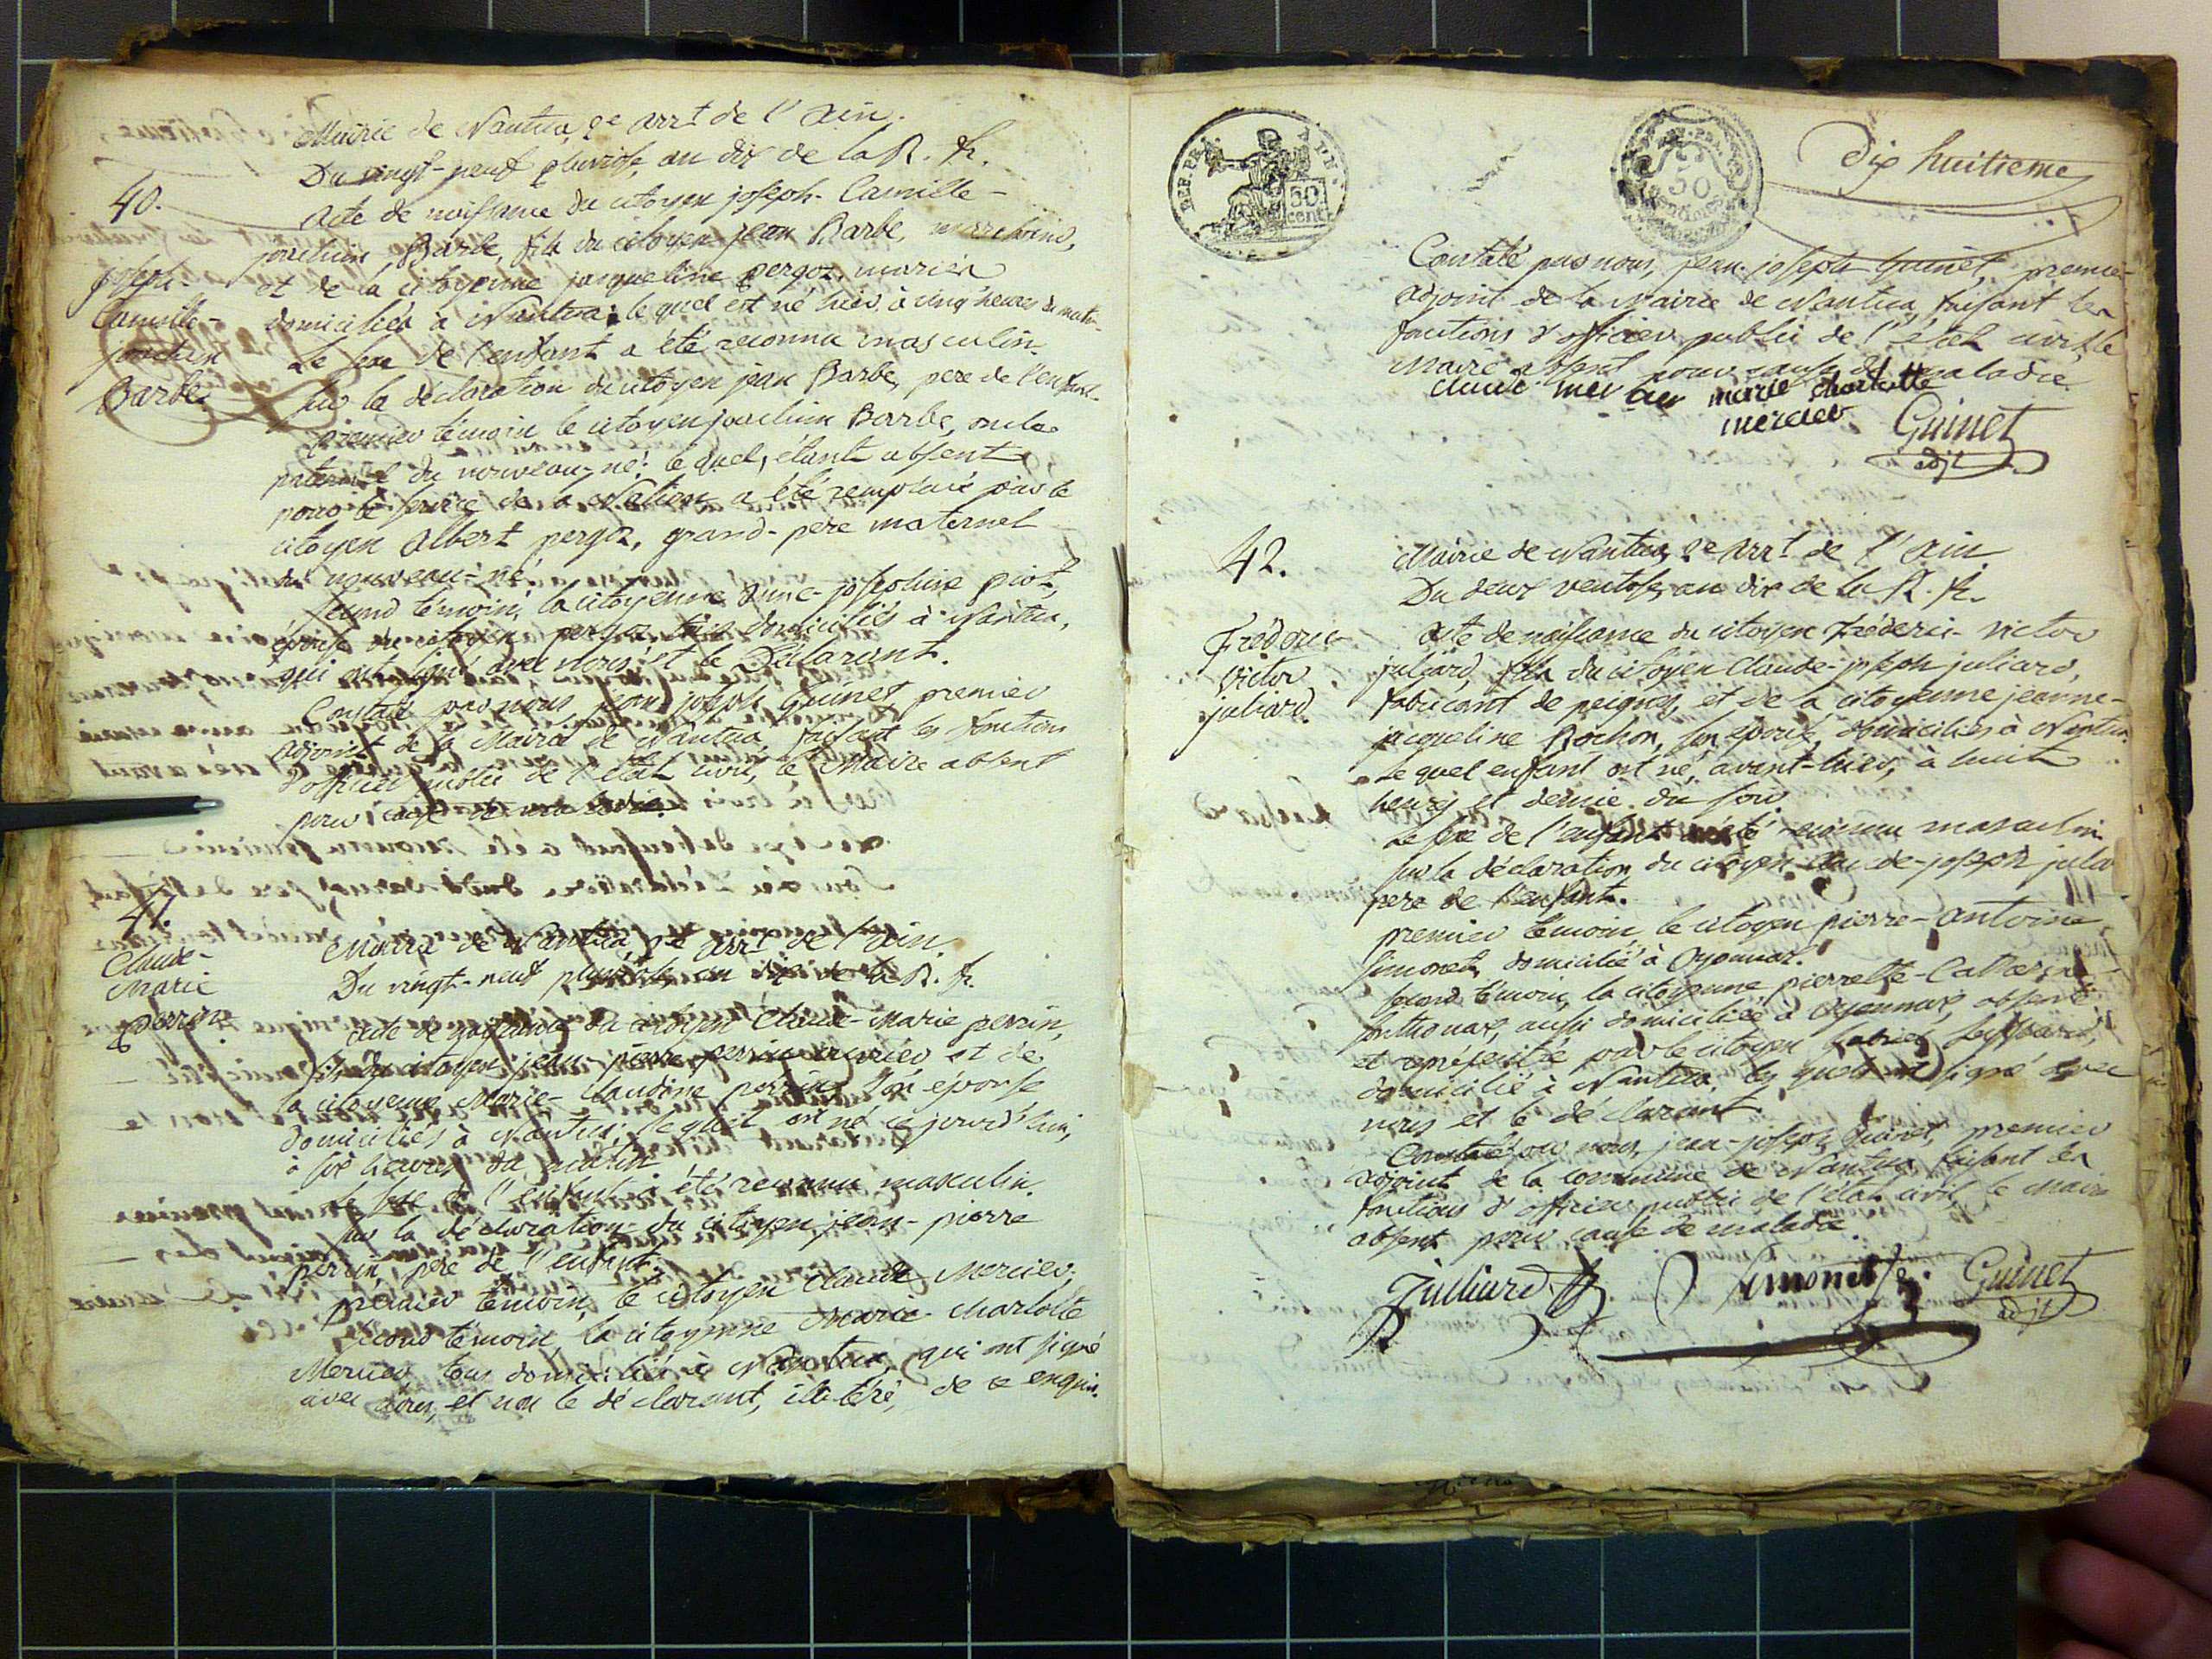 Mairie de Nantua, 2e arrt de l'ain.
Du vingt-neuf pluviose, an dix de la R. fr.
40.
Joseph-
Camille-
joachim
Barbe
acte de naissance du citoyen joseph-Camille-
joachim Barbe, fils du citoyen jean Barbe, marchand,
et de la citoyenne jacqueline pergoz, mariés
domiciliés à Nantua; le quel est né hier à cinq heures du matin.
Le sexe de l'enfant a été reconnu masculin.
sur la déclaration du citoyen jean Barbe, pere de l'enfant.
premier témoin le citoyen joachim Barbe, oncle
paternel du nouveau-né: le quel, étant absent
pour le service de la Nation, a été remplacé par le
citoyen albert pergoz, grand-pere maternel
du nouveau-né.
second témoin, la citoyenne anne-josephine piot,
épouse du citoyen pergoz, tous domiciliés à Nantua,
qui ont signé avec nous et le Déclarant.
Constaté par nous jean joseph Guinet premier
adjoint de la Mairie de Nantua, faisant les fonctions
d'officier public de l'état civil, le Maire absent
pour cause de maladie.
41.
Claude-
Marie
perrin
Mairie de Nantua, 2e arrt de l'ain.
Du vingt-neuf pluviose an dix de la R. fr.
acte de naissance du citoyen Claude-Marie perrin,
fils du citoyen jean-pierre perrin, et de
la citoyenne Marie-Claudine perrin, son épouse
domiciliés à Nantua; le quel est né ce jourd'hui,
à six heures du matin.
Le sexe de l'enfant a été reconnu masculin.
sur la déclaration du citoyen jean-pierre
perrin, père de l'enfant.
premier témoin, le citoyen Claude Mercier;
second témoin, la citoyenne Marie-Charlotte
Mercier, tous domiciliés à Nantua, qui ont signé
avec nous, et non le déclarant, illitéré, de ce enquis.
dix huitieme
REP. FRA
50
cent.
50
centimes
Constaté par nous, jean-joseph Guinet, premier
adjoint de la Mairie de Nantua, faisant les
fonctions d'officier public de l'état civil, le
Maire absent pour cause de maladie.
claude mercier marie charlotte
mercier
Guinet
adjt
42.
Fréderic
victor
juliard.
Mairie de Nantua, 2e arrt de l'ain
Du deux ventose, an dix de la R. fr.
acte de naissance du citoyen fréderic-victor
juliard, fils du citoyen Claude-joseph juliard,
fabricant de peignes, et de la citoyenne jeanne-
jacqueline Rochon, son épouse domiciliés à Nantua.
Le quel enfant est né, avant-hier, à huit
heures et demie du soir.
Le sexe de l'enfant a été reconnu masculin
sur la déclaration du citoyen claude-joseph
pere de l'enfant.
premier témoin, le citoyen pierre-antoine
simonet, domicilié à Oyonnax.
second témoin, la citoyenne pierrette-Catherine
aussi domiciliée à Oyonnax, absente
et représentée par le citoyen
domicilié à Nantua, les quels ont signé avec
nous et le déclarant.
Constaté par nous, jean-joseph Guinet, premier
adjoint de la commune de Nantua, faisant les
fonctions d'officier public de l'état civil, le Maire
absent pour cause de maladie.
Julliard Simonet Guinet
adjt